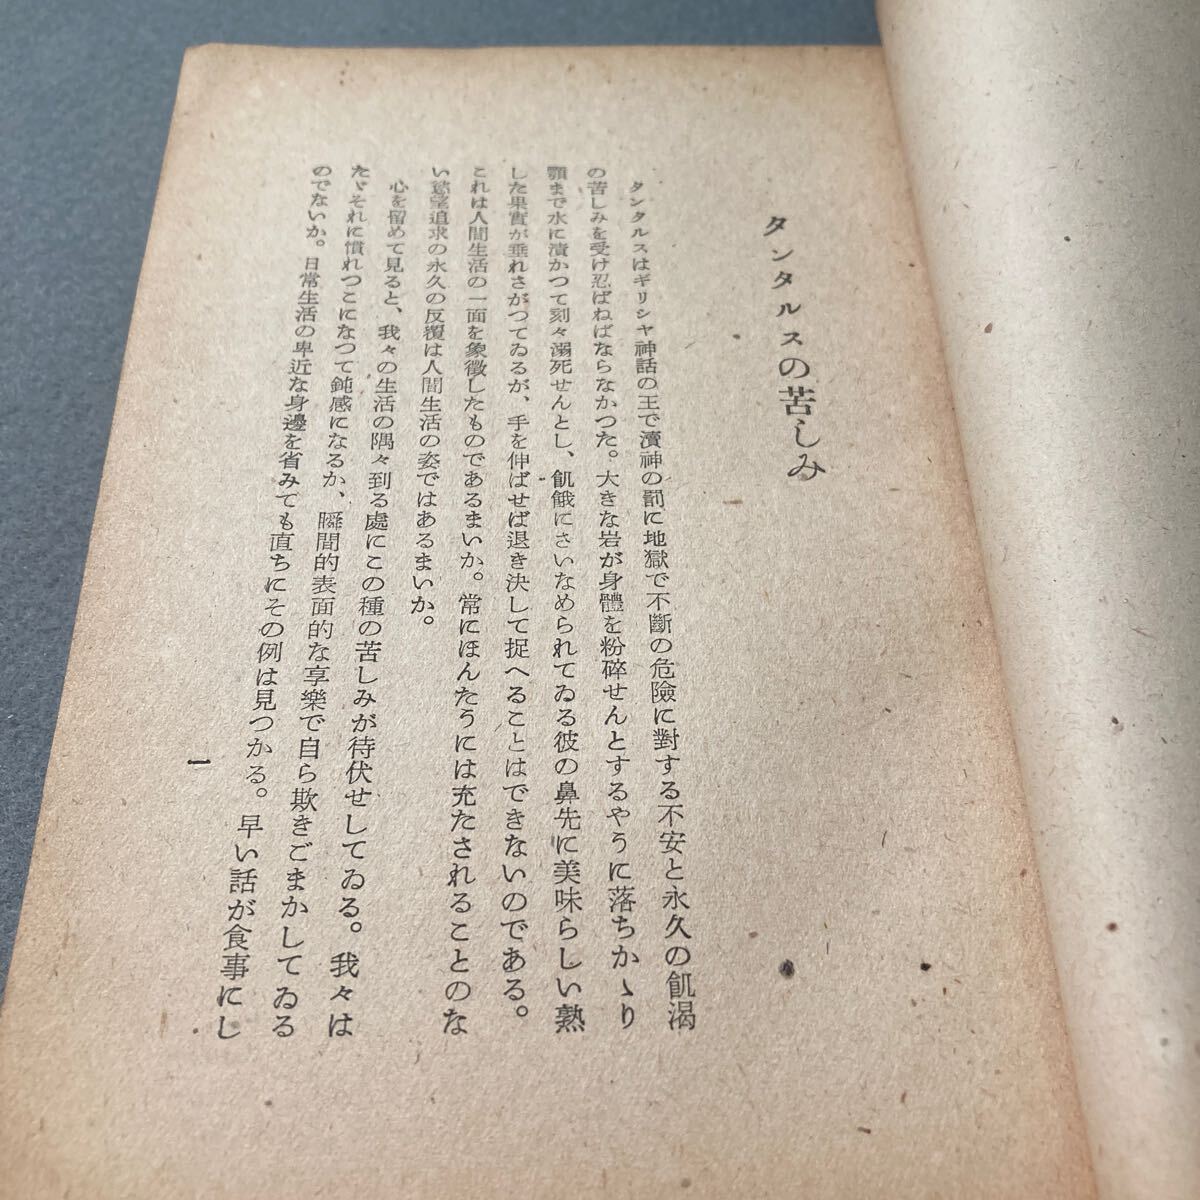 タンタルスの苦しみ
タンタルスはギリシヤ神話の王で瀆神の罰に地獄で不斷の危險に對する不安と永久の飢渴
の苦しみを受け忍ばねばならなかつた。大きな岩が身體を粉碎せんとするやうに落ちかゝり
顎まで水に漬かつて刻々溺死せんとし、飢餓にさいなめられてゐる彼の鼻先に美味らしい熟
した果實が垂れさがつてゐるが、手を伸ばせば退き決して捉へることはできないのである。
これは人間生活の一面を象徵したものであるまいか。常にほんたうには充たされることのな
い慾望追求の永久の反覆は人間生活の姿ではあるまいか。
心を留めて見ると、我々の生活の隅々到る處にこの種の苦しみが待伏せしてゐる。我々は
たゞそれに慣れつこになつて鈍感になるか、瞬間的表面的な享樂で自ら欺きごまかしてゐる
のでないか。日常生活の卑近な身邊を省みても直ちにその例は見つかる。早い話が食事にし
一